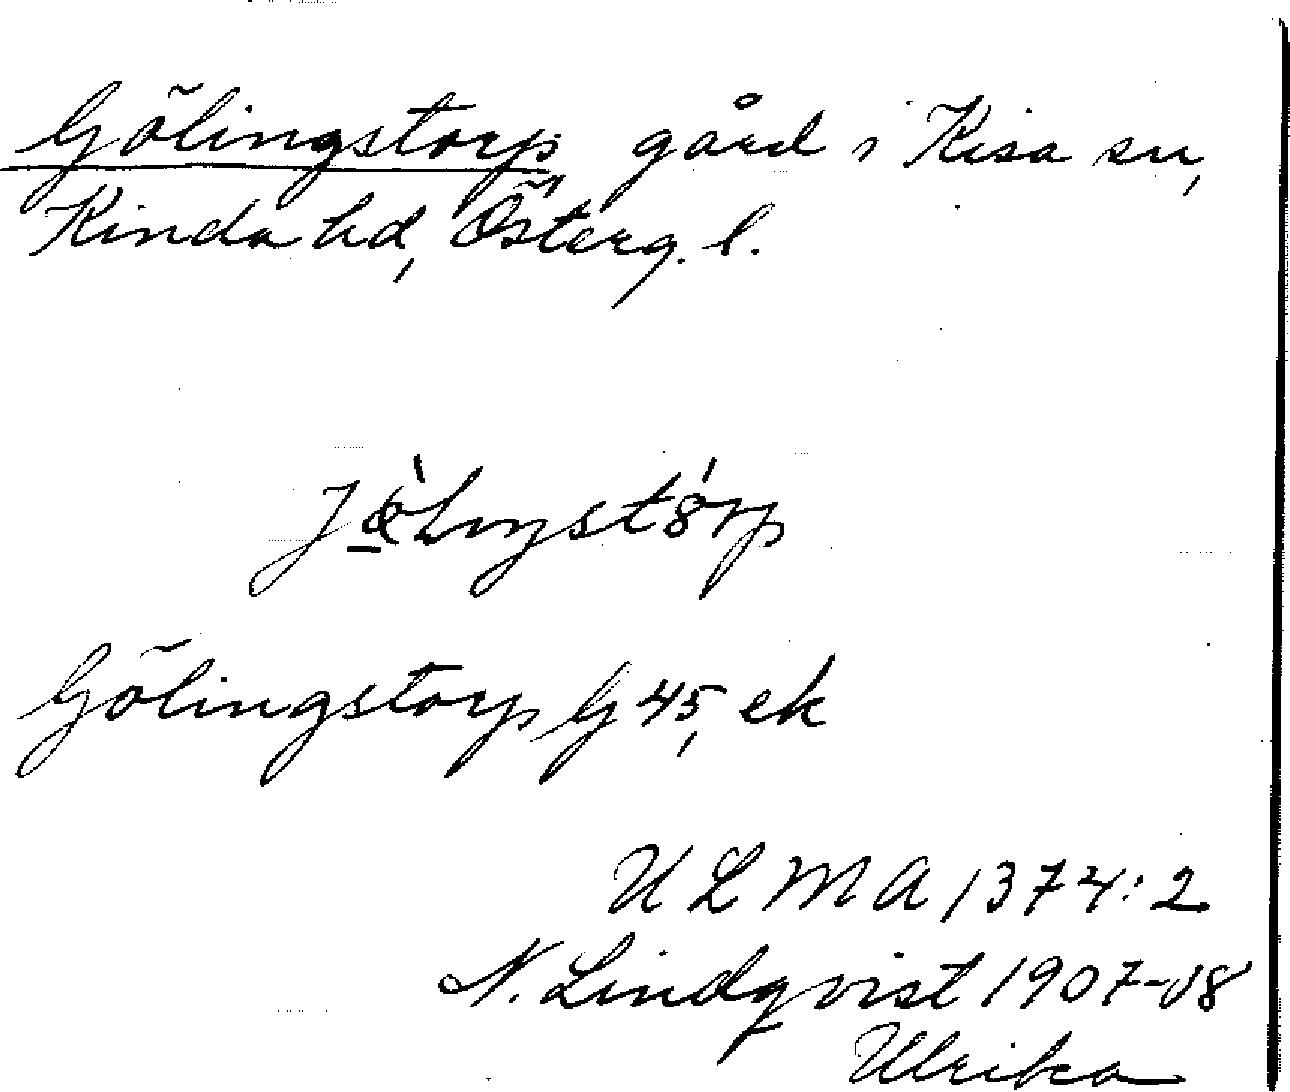 Gölingstorp gård i Kisa sn,
Kinda hd, Österg. l.
Gölingstorp G 45, ek
ULMA 1374:2
N. Lindqvist 1907-08
Ulrika